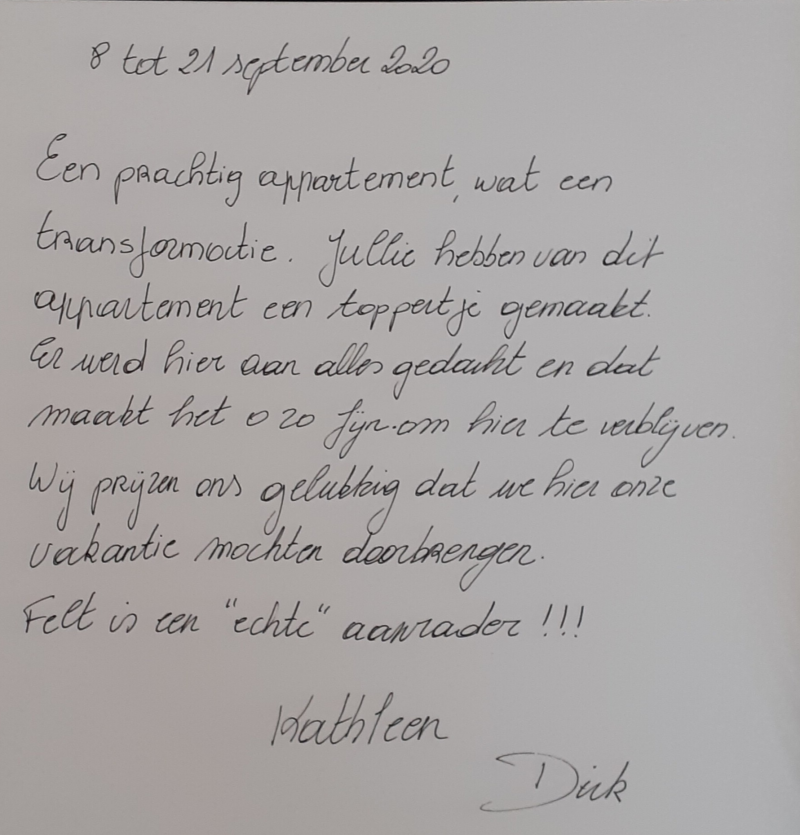 8 tot 21 september 2020
Een prachtig appartement, wat een
transformatie. Jullie hebben van dit
appartement een toppertje gemaakt.
Er werd hier aan alles gedacht en dat
maakt het o zo fijn om hier te verblijven.
Wij prijzen ons gelukkig dat we hier onze
vakantie mochten doorbrengen.
Felt is een "echte" aanrader !!!
Kathleen
Dirk